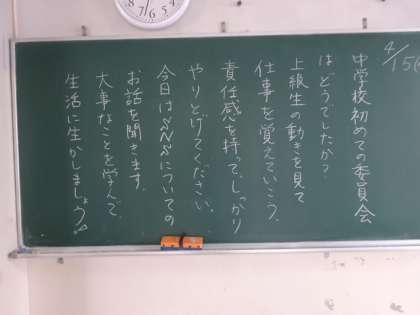 4/15
中学校初めての委員会
はどうでしたか?
上級生の動きを見て
仕事を覚えていこう。
責任感を持って、しっかり
やりとげてください。
今日はSNSについての
お話を聞きます。
大事なことを学んで、
生活に生かしましょう。
8 7 6 5 4